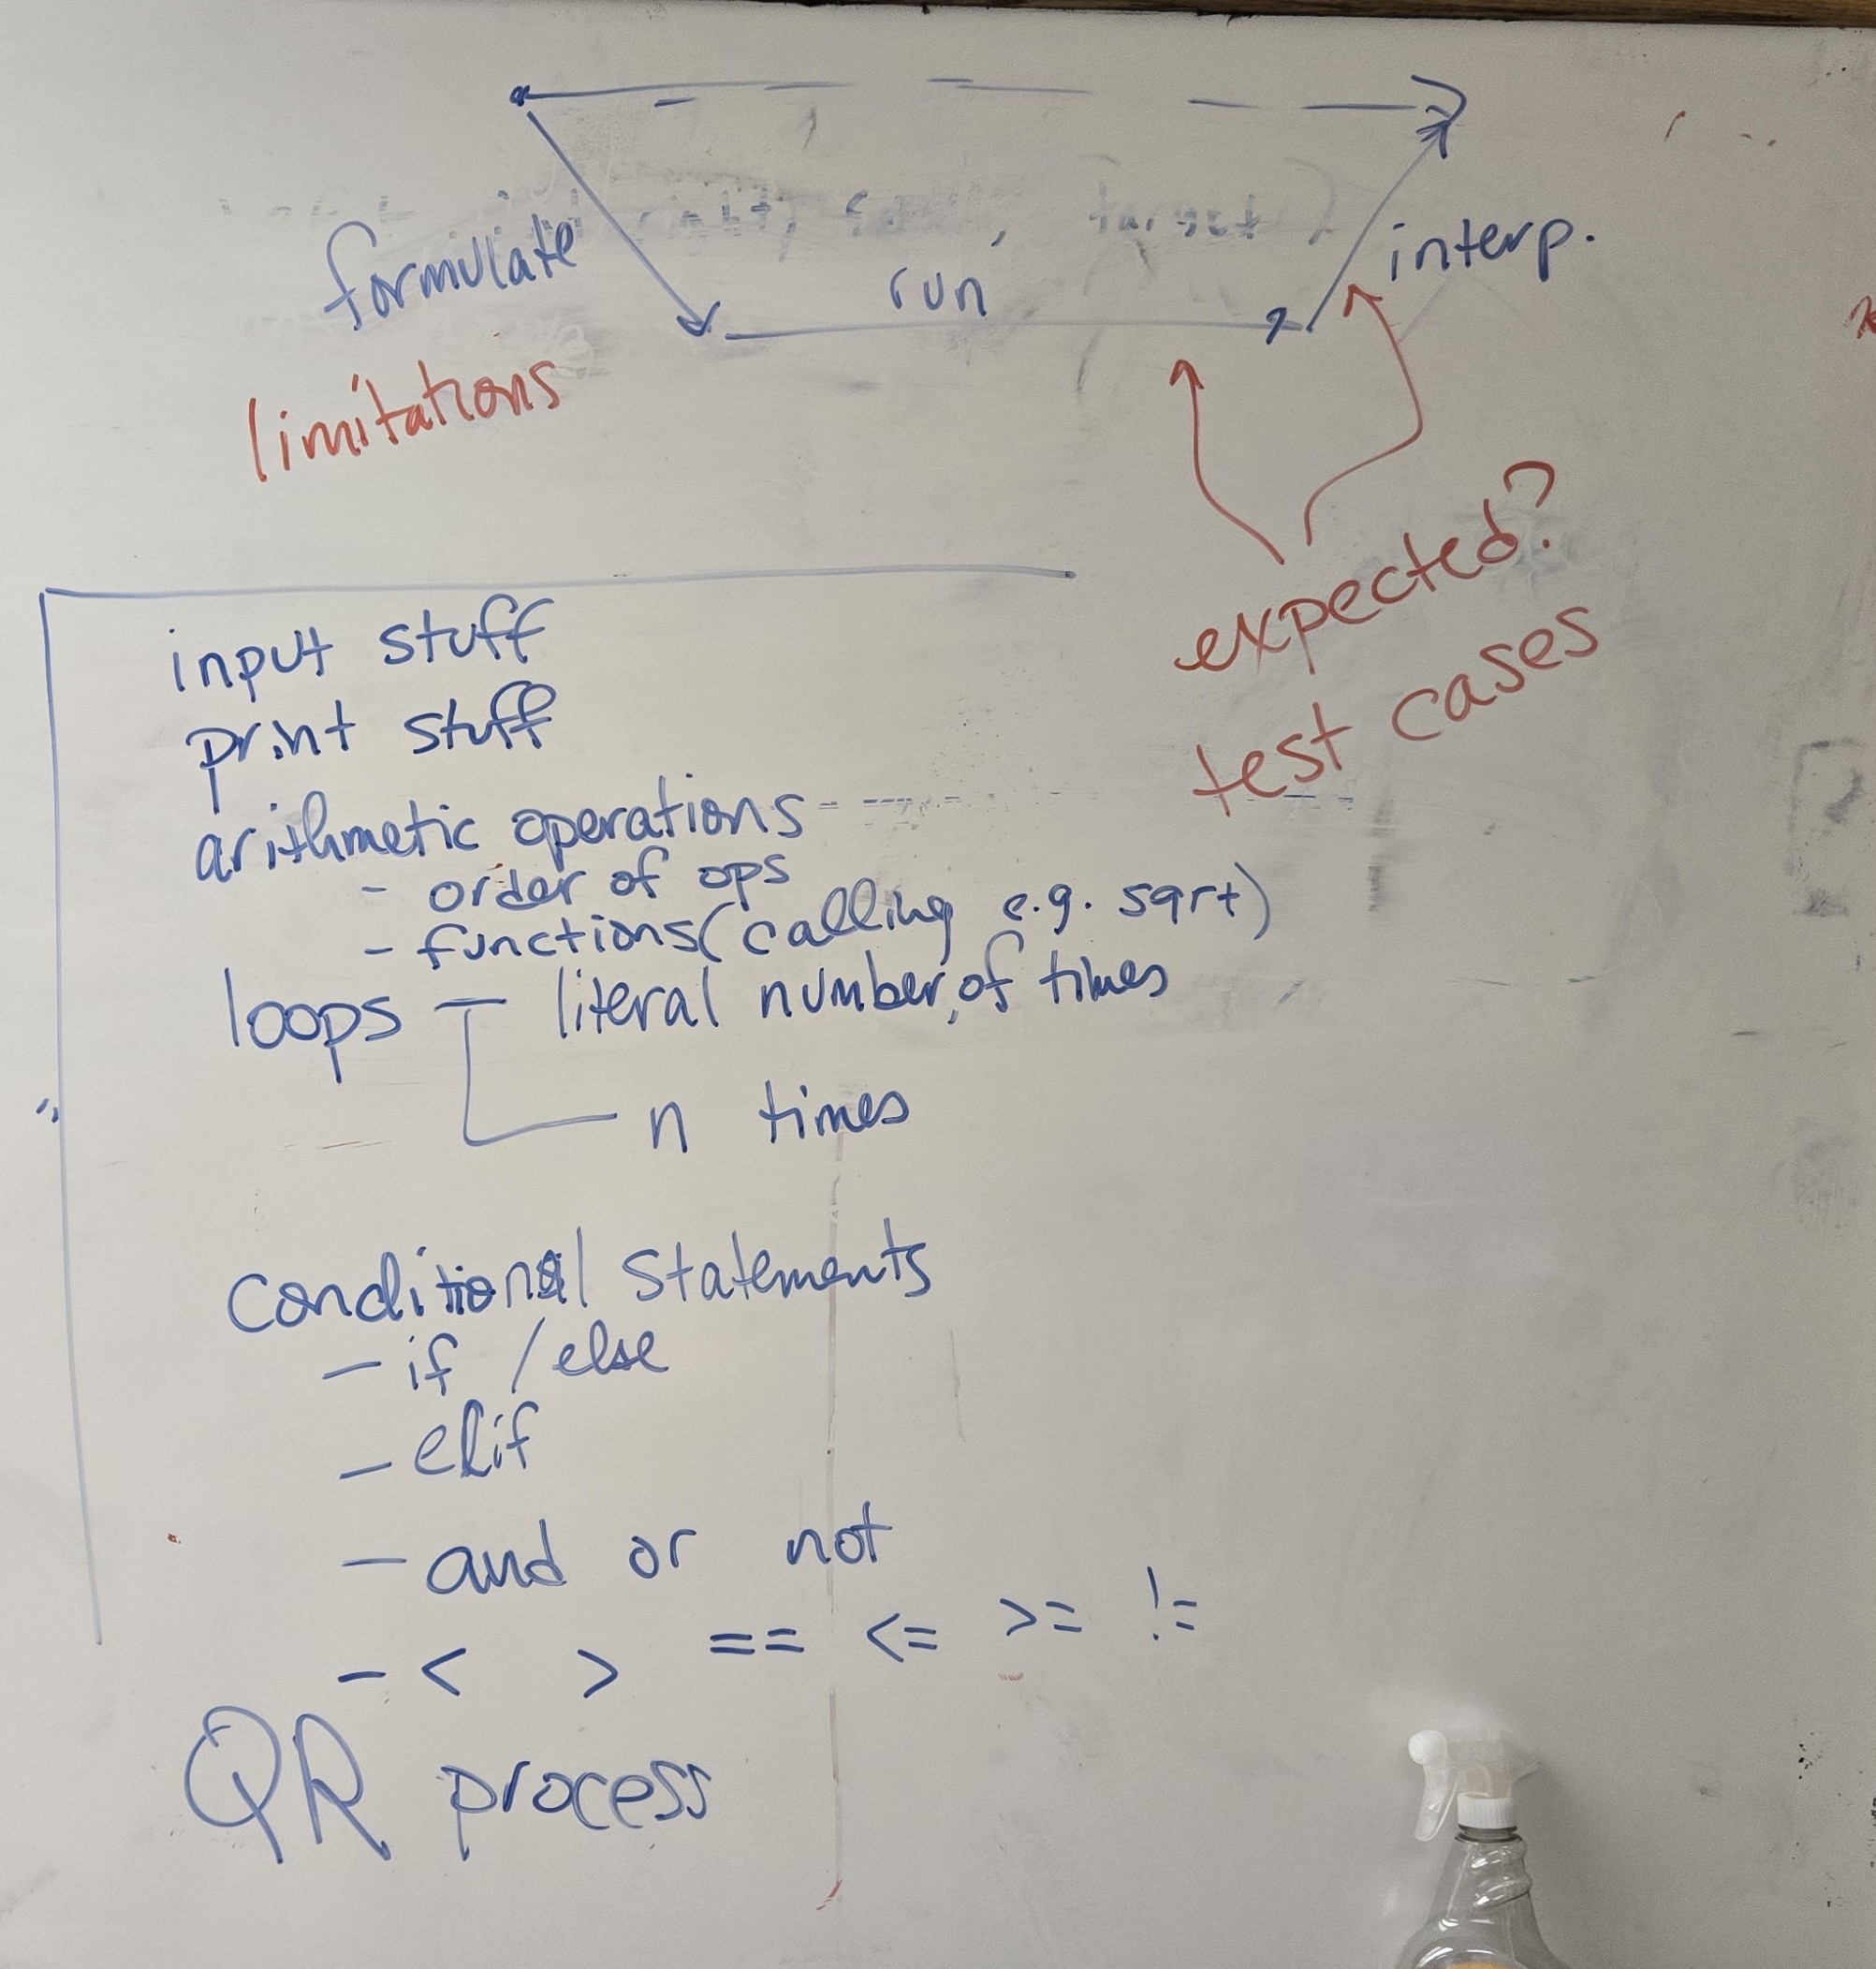 formulate
run
interp.
limitations
expected?
test cases
input stuff
print stuff
arithmetic operations
- order of ops
- functions(calling e.g. sqrt)
loops - literal number of times
n times
conditional statements
- if / else
- elif
- and or not
- < > == <= >= !=
QR process